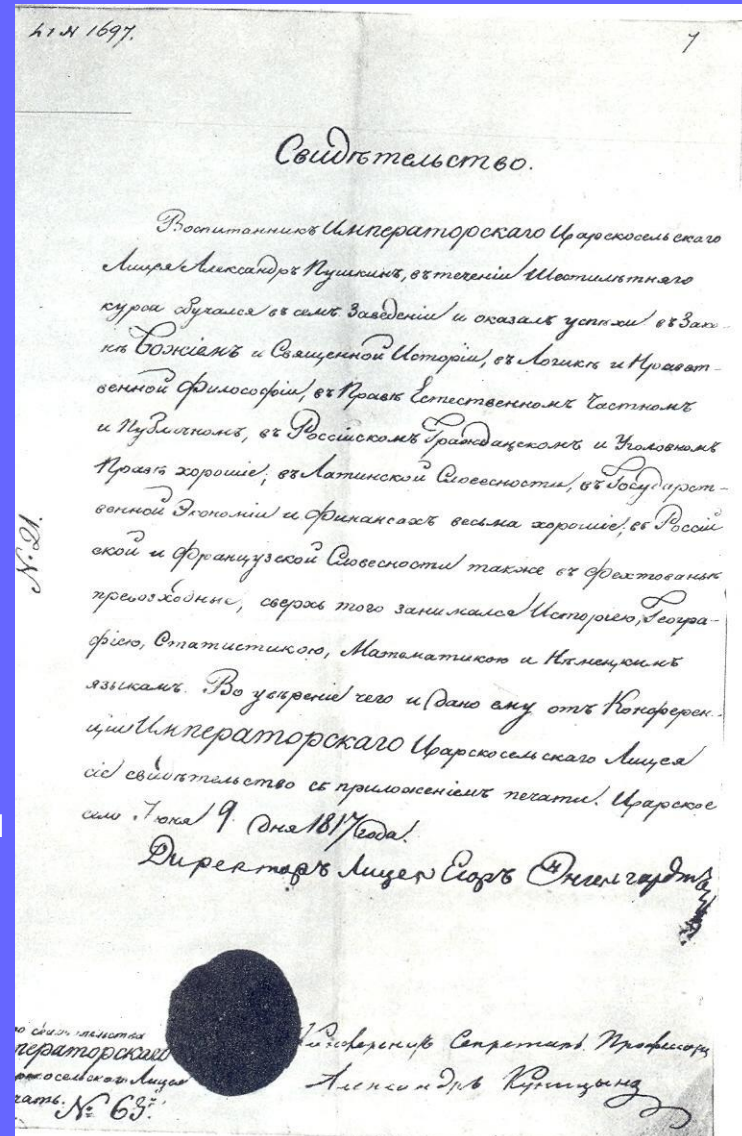 1697.
Свидѣтельство.
Воспитанникъ Императорскаго Царскосельскаго
Лицея Александръ Пушкинъ, въ теченіи Шестилѣтняго
курса обучался въ семъ Заведеніи и оказалъ успѣхи въ Зако-
нѣ Божіемъ и Священной Исторіи, въ Логикѣ и Нравст-
венной Философіи, въ Правѣ Естественномъ Частномъ
и Публичномъ, въ Россійскомъ Гражданскомъ и Уголовномъ
Правѣ хорошіе; въ Латинской Словесности, въ Государст-
венной Экономіи и Финансахъ весьма хорошіе; въ Россій
ской и Французской Словесности также въ Фехтованьи
превозходные, сверхъ того занимался Исторіею, Геогра-
фіею, Статистикою, Математикою и Нѣмецкимъ
языкамъ. Во увѣреніе чего и дано ему отъ Конферен-
ціи Императорскаго Царскосельскаго Лицея
сіе свидѣтельство съ приложеніемъ печати. Царское
село Іюня 9 дня 1817 года.
Директоръ Лицея Егоръ Энгельгардтъ
№ 21.
Конференцъ Секретарь Профессоръ
Александръ Куницынъ
свидѣтельства
ператорскаго
рскосельскаго Лицея
чать. № 63.